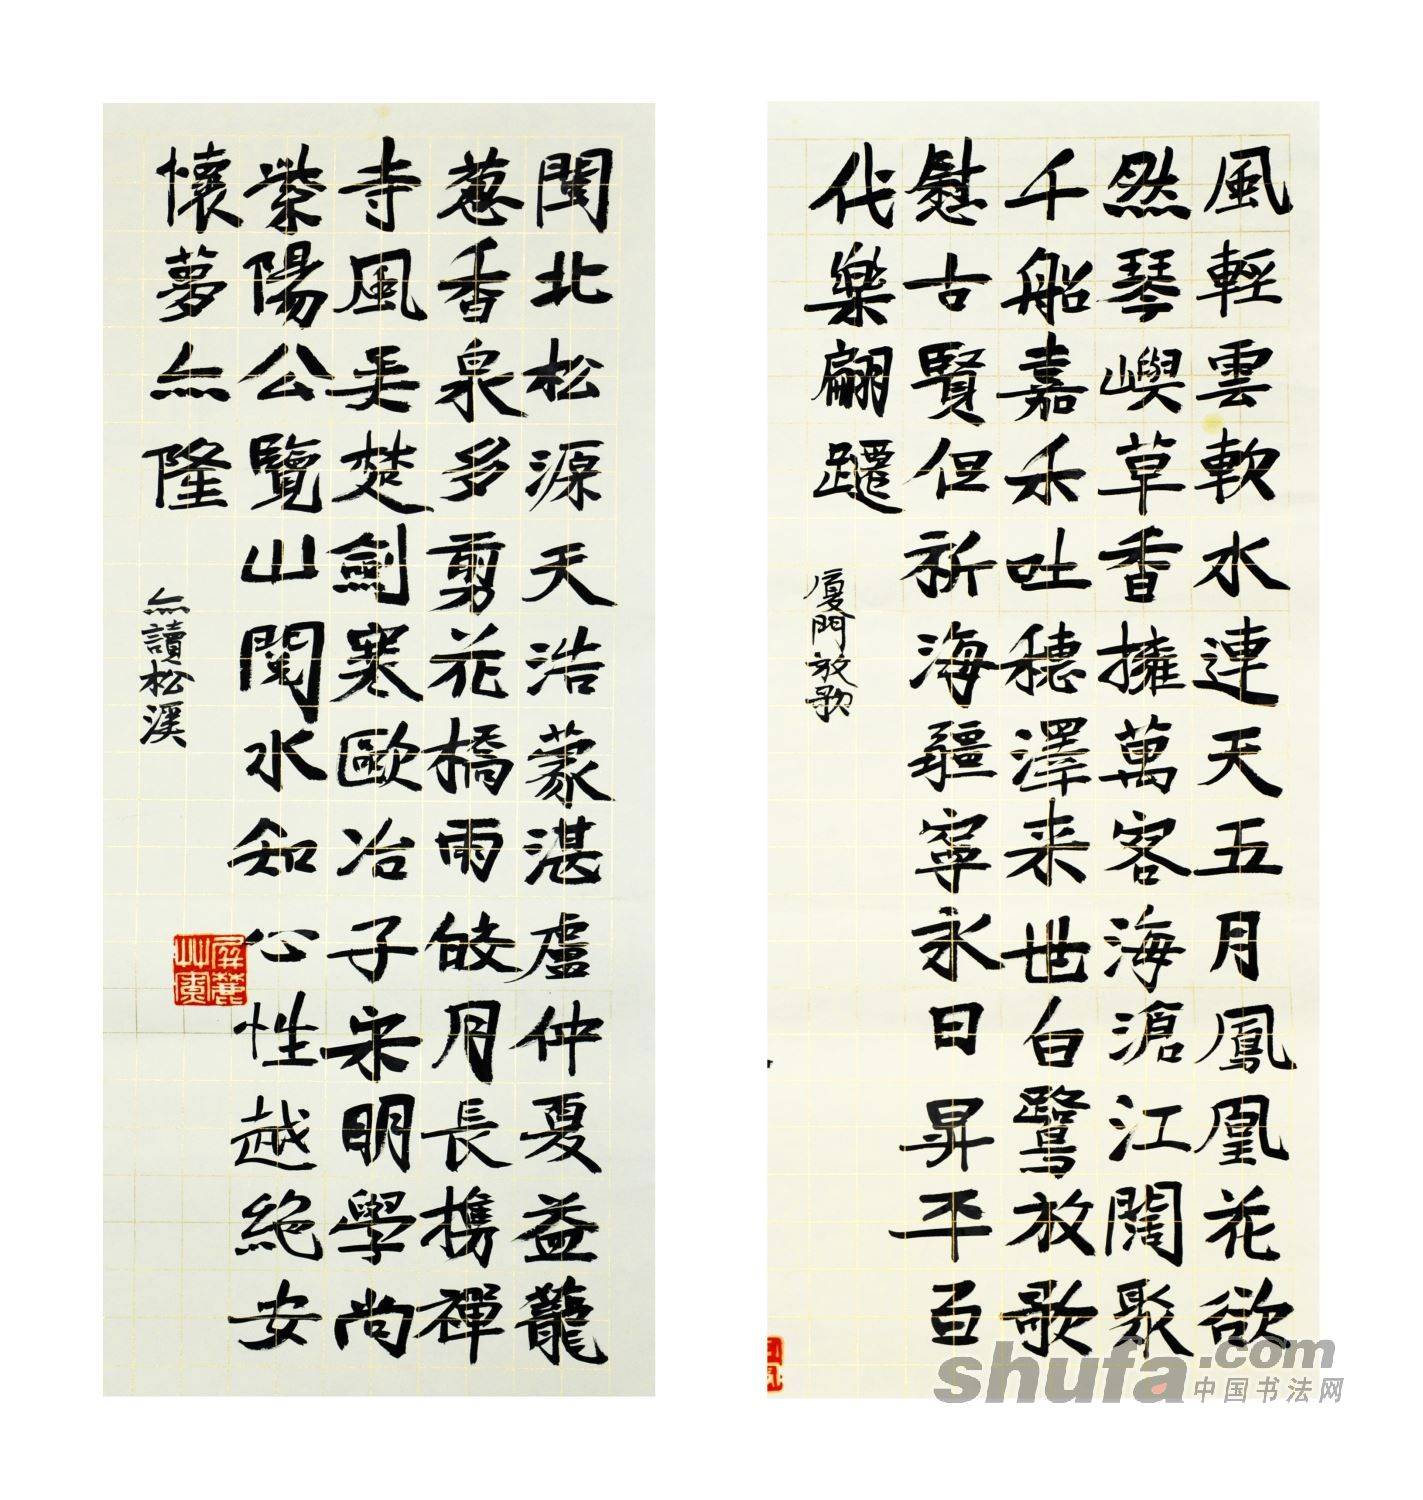 風輕雲軟水連天五月鳳凰花欲
然琴嶼草香擁萬客海滄江闊聚
千船嘉禾吐穗澤来世白鷺放歌
慰古賢但祈海疆寧永日昇平百
代樂翩躚
厦門放歌
閩北松源天浩蒙湛盧仲夏益蘢
蔥香泉多剪花橋雨皎月長擕禪
寺風吴楚劍寒歐冶子宋明學尚
紫陽公覽山閱水知心性越絶安
懷夢亦隆
亦讀松溪
屏麓
shufa.com
中国书法网